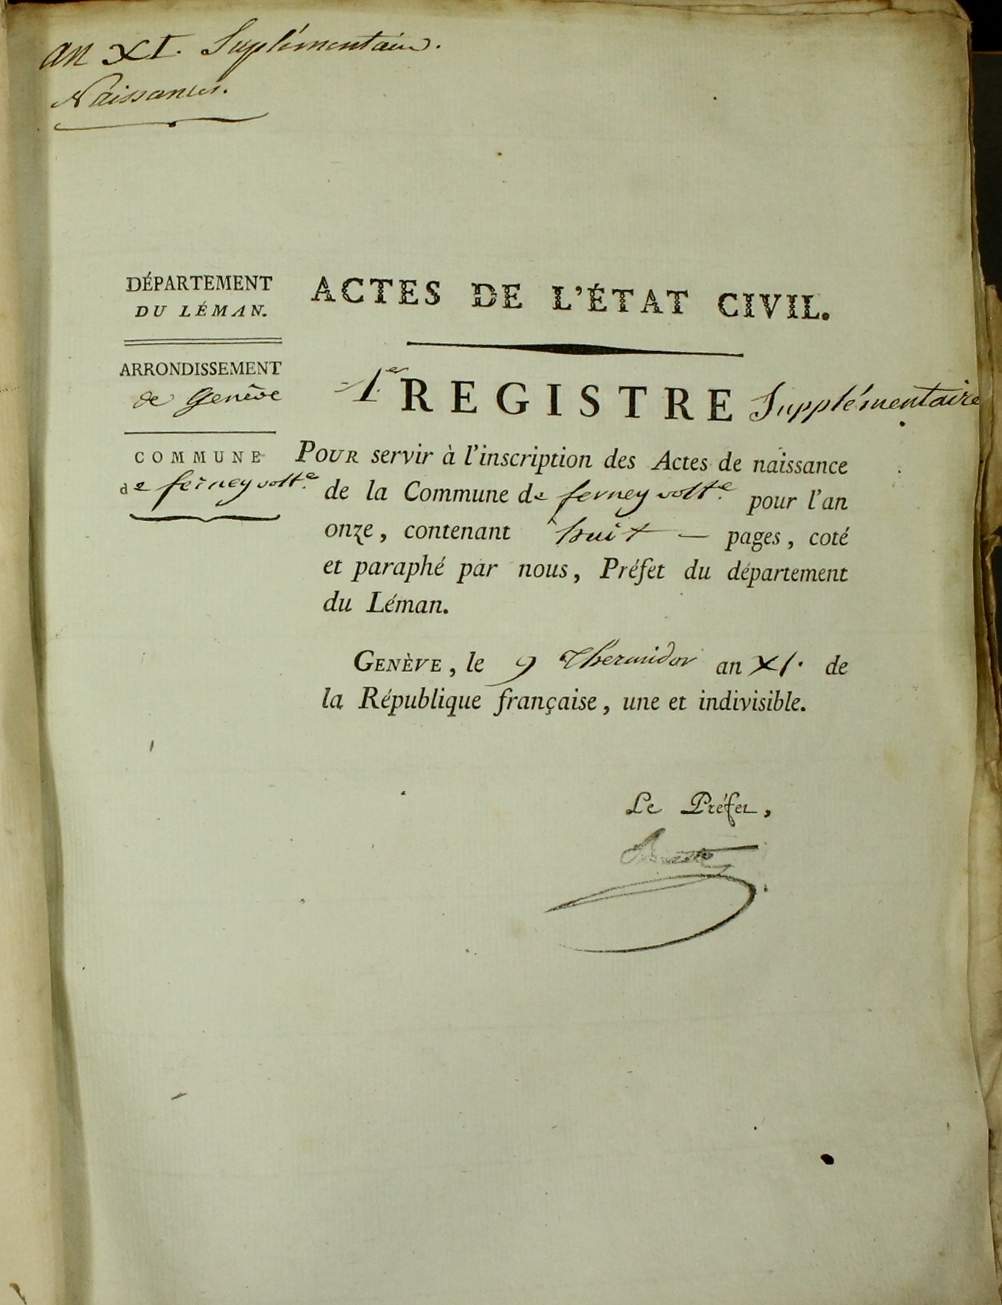 an XI. Suplémentaire.
Naissances.
DÉPARTEMENT
DU LÉMAN.
ARRONDISSEMENT
de Genève
COMMUNE
de ferney volt.e
ACTES DE L'ÉTAT CIVIL.
1er REGISTRE Supplémentaire
POUR servir à l'inscription des Actes de naissance
de la Commune de ferney volt.e pour l'an
onze, contenant huit — pages, coté
et paraphé par nous, Préfet du département
du Léman.
GENÈVE, le 9 Thermidor an XI. de
la République française, une et indivisible.
Le Préfet,